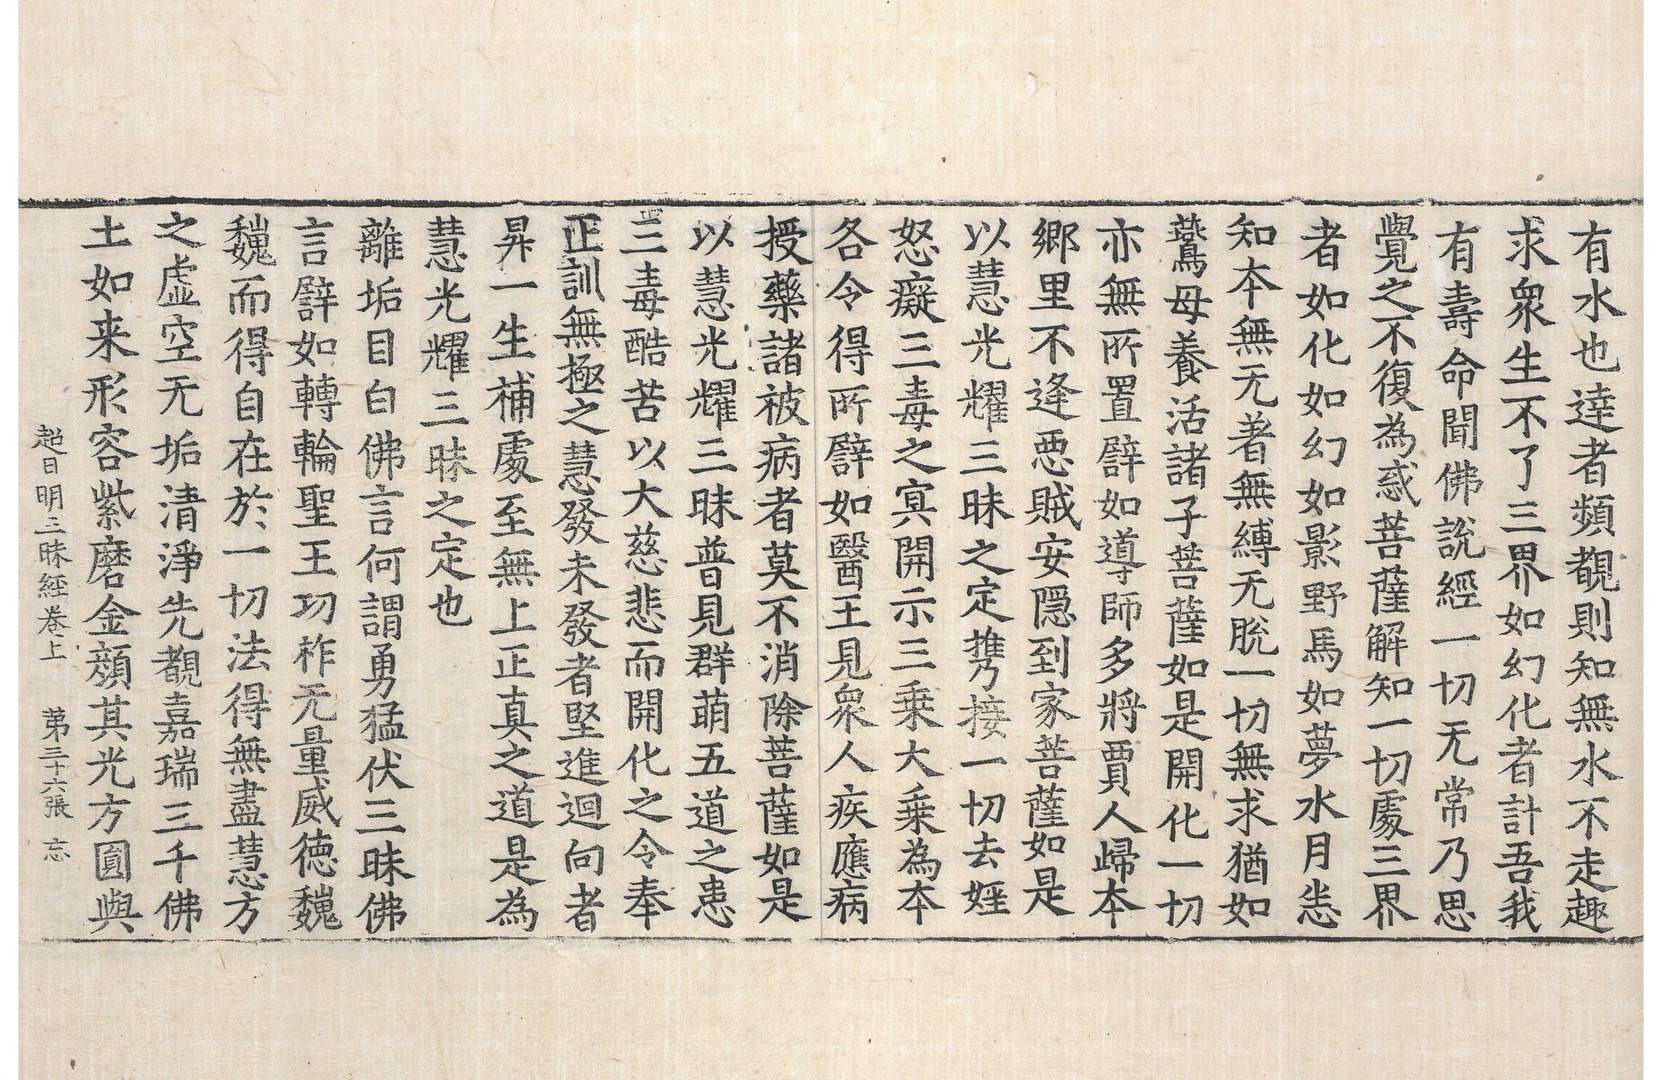 有水也達者頻覩則知無水不走趣
求衆生不了三界如幻化者計吾我
有壽命聞佛說經一切无常乃思
覺之不復為惑菩薩解知一切處三界
者如化如幻如影野馬如夢水月恙
知本無无著無縛无脫一切無求猶如
鷰母養活諸子菩薩如是開化一切
亦無所置譬如導師多將賈人歸本
鄉里不逢惡賊安隱到家菩薩如是
以慧光耀三昧之定携接一切去婬
怒癡三毒之㝠開示三乗大乗為本
各令得所譬如醫王見衆人疾應病
授藥諸被病者莫不消除菩薩如是
以慧光耀三昧普見群萌五道之患
三毒酷苦以大慈悲而開化之令奉
正訓無極之慧發未發者堅進迴向者
昇一生補處至無上正真之道是為
慧光耀三昧之定也
離垢目白佛言何謂勇猛伏三昧佛
言譬如轉輪聖王功祚无量威德魏
魏而得自在於一切法得無盡慧方
之虛空无垢清淨先覩嘉瑞三千佛
土如来形容紫磨金顔其光方圓與
超日明三昧經卷上 苐三十六張 忘